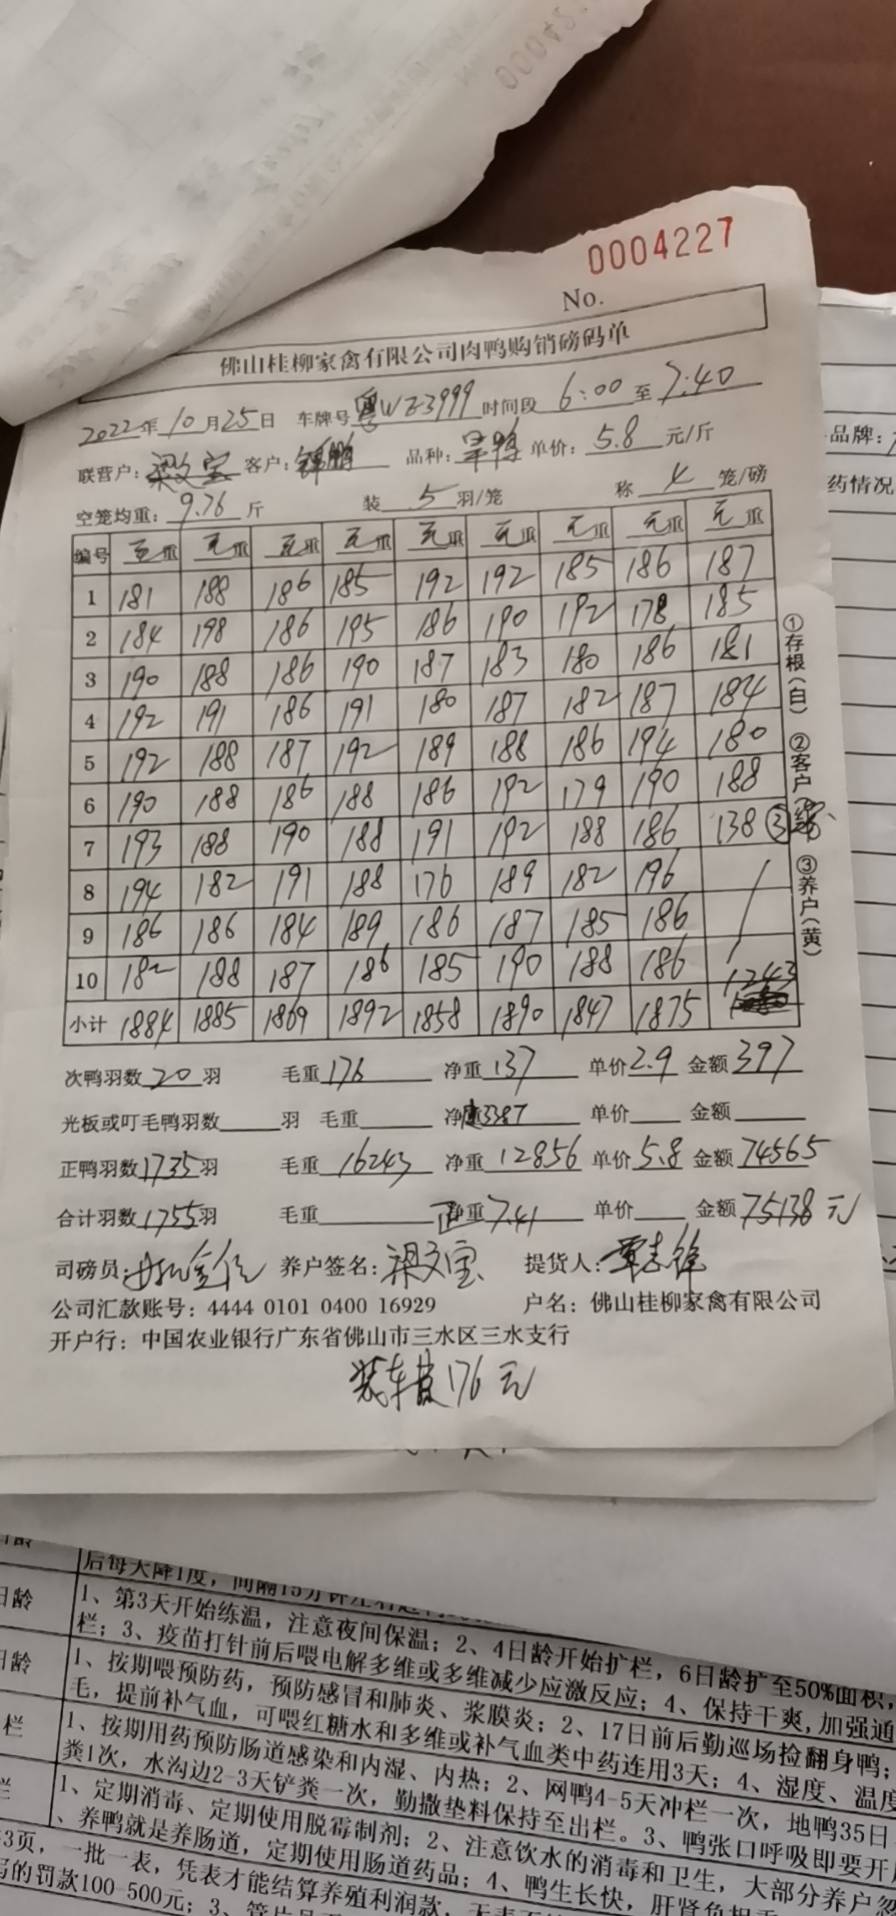 0004227
No.
佛山桂柳家禽有限公司肉鸭购销磅码单
2022年10月25日 车牌号粤WZ3999时间段6:00至7:40
联营户:梁文宝客户:锦鹏 品种: 单价:5.8元/斤
空笼均重:9.76斤 装5羽/笼 称4笼/磅
编号 毛重 毛重 毛重 毛重 毛重 毛重 毛重 毛重 毛重
1 181 188 186 185 192 192 185 186 187
2 184 198 186 195 186 190 192 178 185
3 190 188 186 190 187 183 180 186 181
4 192 191 186 191 180 187 182 187 184
5 192 188 187 192 189 188 186 194 180
6 190 188 186 188 186 192 179 190 188
7 193 188 190 188 191 192 188 186 138 ③笼
8 194 182 191 188 176 189 182 196
9 186 186 184 189 186 187 185 186
10 182 188 187 186 185 190 188 186
小计 1884 1885 1869 1892 1858 1890 1847 1875 1243
①存根(白) ②客户 ③养户(黄)
次鸭羽数20羽 毛重176 净重137 单价2.9 金额397
光板或叮毛鸭羽数 羽 毛重 净 3387 单价 金额
正鸭羽数1735羽 毛重16243 净重12856 单价5.8 金额74565
合计羽数1755羽 毛重 重7.41 单价 金额75138元
司磅员: 养户签名:梁文宝 提货人:覃志锋
公司汇款账号:4444 0101 0400 16929 户名:佛山桂柳家禽有限公司
开户行:中国农业银行广东省佛山市三水区三水支行
装车费176元
品牌:
药情况
后每天降1度,间隔15分钟左右
日龄
1、第3天开始练温,注意夜间保温;2、4日龄开始扩栏,6日龄扩至50%面积,
栏;3、疫苗打针前后喂电解多维或多维减少应激反应;4、保持干爽,加强通
日龄
1、按期喂预防药,预防感冒和肺炎、浆膜炎;2、17日前后勤巡场捡翻身鸭;
毛,提前补气血,可喂红糖水和多维或补气血类中药连用3天;4、湿度、温度
栏
1、按期用药预防肠道感染和内湿、内热;2、网鸭4-5天冲栏一次,地鸭35日
粪1次,水沟边2-3天铲粪一次,勤撒垫料保持至出栏。3、鸭张口呼吸即要开
栏
1、定期消毒、定期使用脱霉制剂;2、注意饮水的消毒和卫生,大部分养户忽
、养鸭就是养肠道,定期使用肠道药品;4、鸭生长快,肝肾负担
3页,一批一表,凭表才能结算养殖利润款,无表不
的罚款100-500元;3、